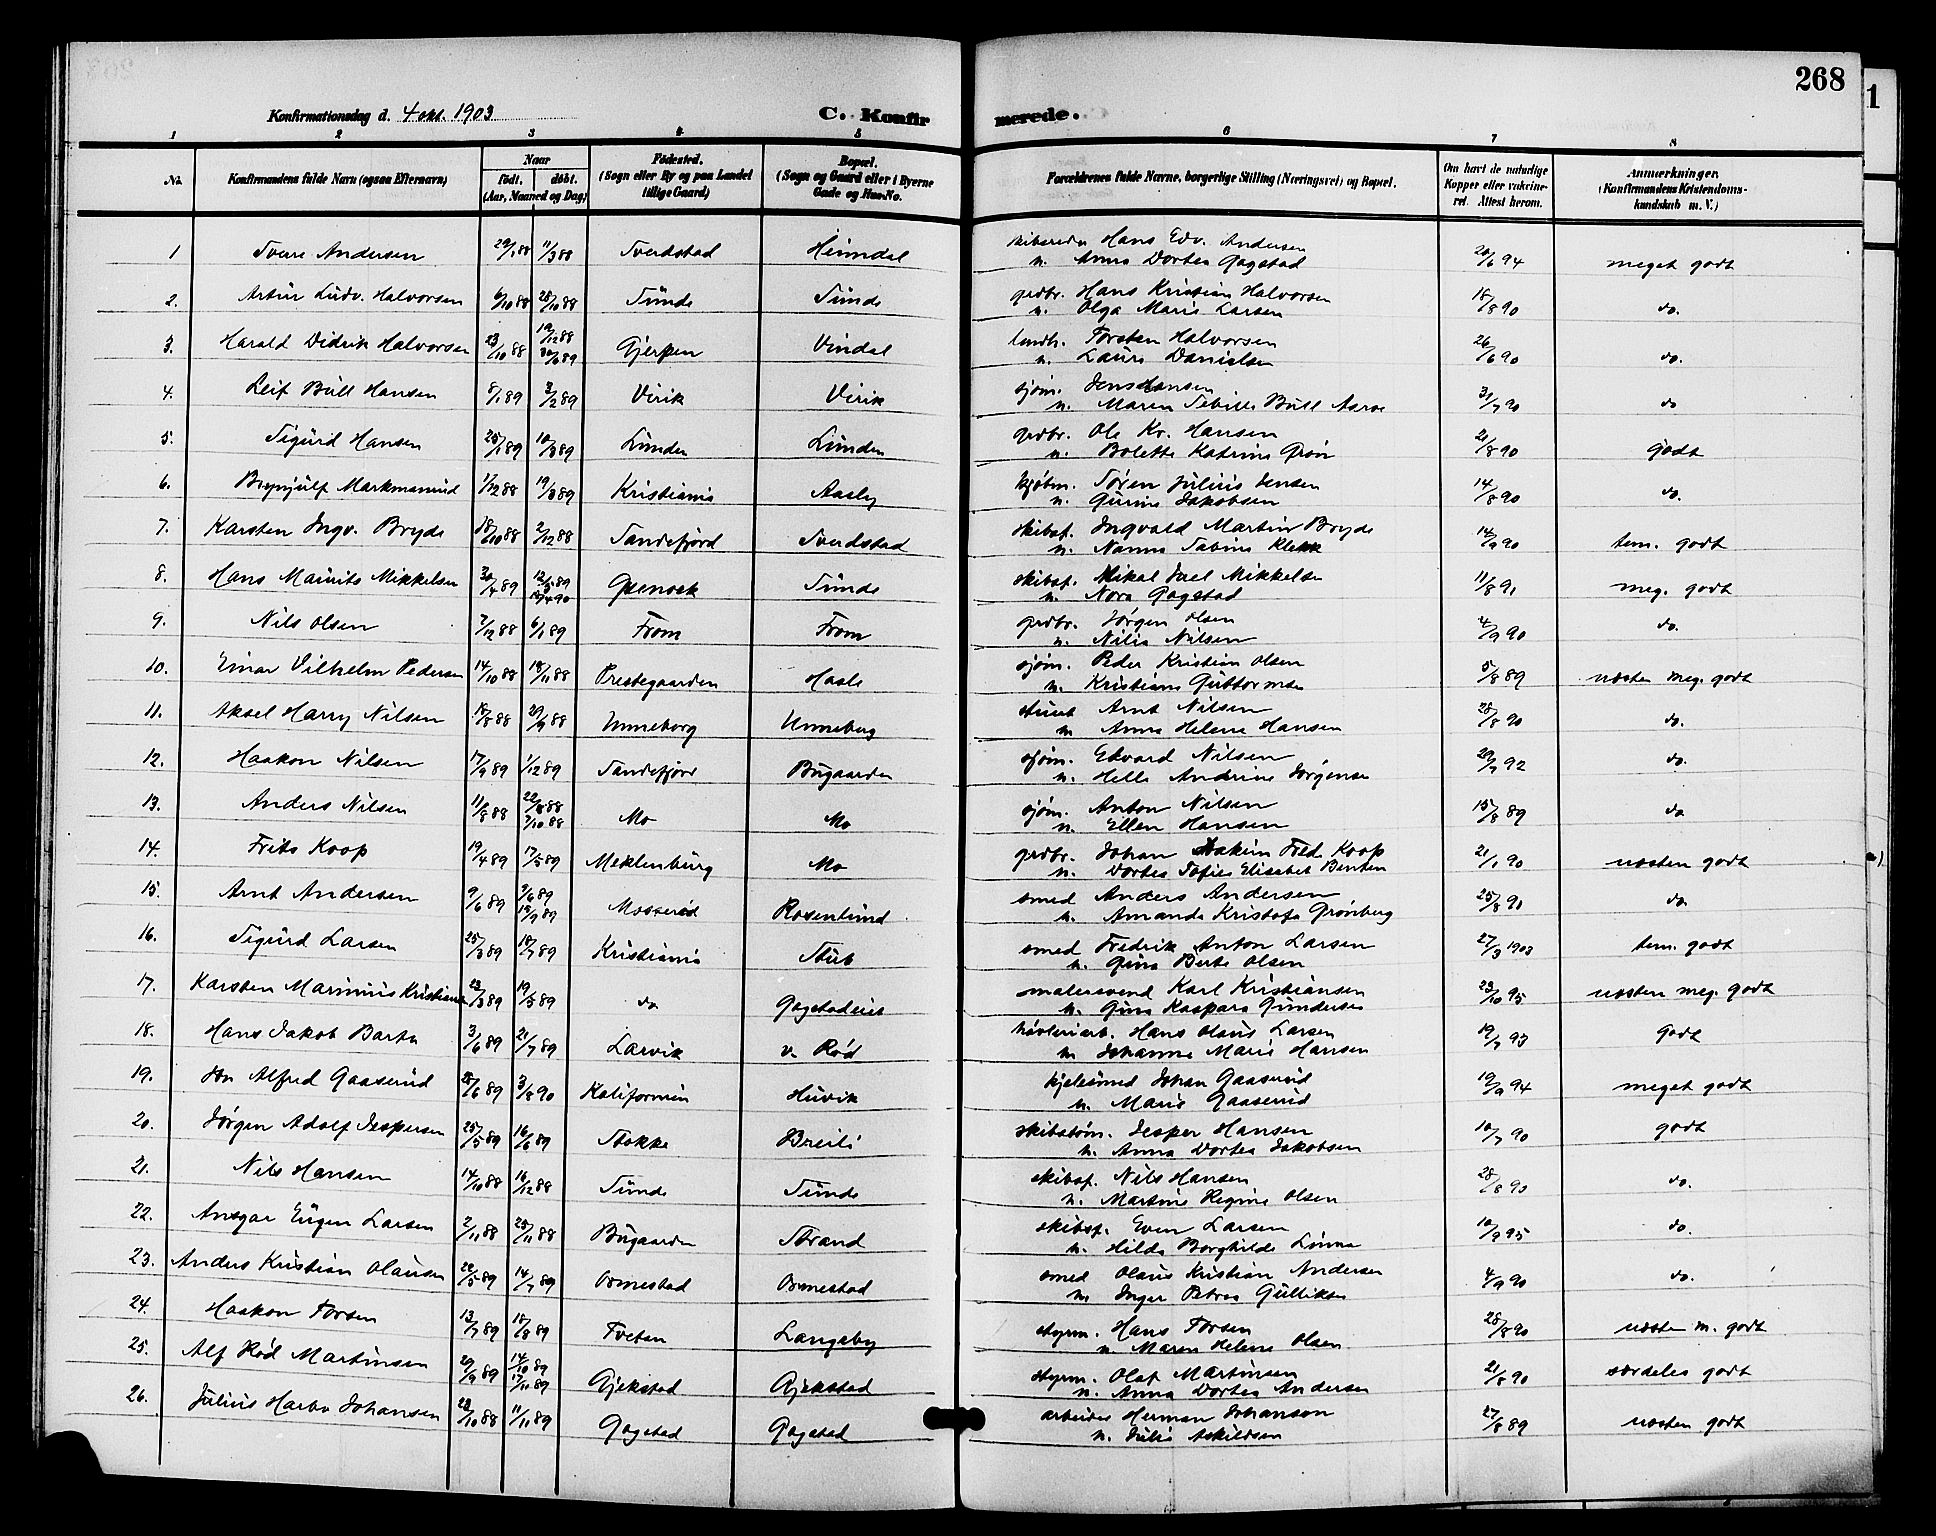 268
1
Konfirmationsdag d. 4 okt. 1903
C. Konfirmerede.
1 2 3 4 5 6 7 8
No. Konfirmandens fulde Navn (ogsaa Efternavn) Naar født. døbt. (Aar, Maaned og Dag) Fødested. (Sogn eller By og paa Landet tillige Gaard) Bopæl. (Sogn og Gaard eller i Byerne Gade og Hus-No. Forældrenes fulde Navne, borgerlige Stilling (Næringsvei) og Bopæl. Om havt de naturlige Kopper eller vakcineret. Attest herom. Anmerkninger. (Konfirmandens Kristendomskundskab m. V.)
1 Sverre Andersen 29/1 88 11/3 88 Sverdstad Heimdal skibsredr Hans Edv. Andersen 20/6 94 meget godt
n. Anna Dortea Gogstad
2. Artur Ludv. Halvorsen 6/10 88 28/10 88 Sunde Sunde grdbr. Hans Kristian Halvorsen 18/8 90 do.
n. Olga Marie Larsen
3. Harald Didrik Halvorsen 23/10 88 19/12 88 30/6 89 Gjerpen Vindal landh. Torsten Halvorsen 26/6 90 do.
n. Laura Danielsen
4. Leif Bull Hansen 8/1 89 3/2 89 Virik Virik sjøm. Jens Hansen 31/7 90 do
n. Maren Sebille Bull Aarøe
5. Sigurd Hansen 25/1 89 10/3 89 Lunden Lunden grdbr. Ole Kr. Hansen 21/8 90 godt
n. Bolette Katrine Grøn
6. Brynjulf Markmanrud 1/12 88 19/3 89 Kristiania Aasly kjøbm. Søren Julius Jensen 14/8 90 do.
n. Gurine Jakobsen
7. Karsten Ingv. Bryde 18/10 88 2/12 88 Sandefjord Sverdstad skibsf. Ingvald Martin Bryde 14/9 90 tem. godt
n. Nanna Sabine Klekk
8. Hans Mauritz Mikkelsen 30/4 89 Sunde skibsf. Mikal Joel Mikkelsen 11/8 91 meg. godt
n. Nora Gogstad
9. Nils Olsen 7/12 88 6/1 89 From From grdbr. Jørgen Olsen 4/9 90 do.
n. Nilia Nilsen
10. Einar Vilhelm Pedersen 14/10 88 18/11 88 Prestegaarden Hasle sjøm. Peder Kristian Olsen 5/8 89 næsten meg. godt
n. Kristiane Guttormsen
11. Aksel Harry Nilsen 18/8 88 20/9 88 Unneberg Unneberg stuert Arnt Nilsen 28/8 90 do.
n. Anna Helene Hansen
12. Haakon Nilsen 17/9 89 1/12 89 Sandefjord Bugaarden sjøm. Edvard Nilsen 29/7 92 do.
n. Helle Andrine Jørgensen
13. Anders Nilsen 11/8 88 22/8 88 7/10 88 Mo Mo sjøm. Anton Nilsen 15/8 89 do
n. Ellen Hansen
14. Frits Koop 19/4 89 17/5 89 Meklenburg Mo grdbr. Johan Joakim Fred. Koop 21/1 90 næsten godt
n. Dortea Sofie Elisabet Benten
15. Arnt Andersen 9/6 89 9/6 89 15/9 89 Mosserød Rosenlund smed Anders Andersen 25/8 91 do
n. Amanda Kristofa Grønberg
16. Sigurd Larsen 25/3 89 18/7 89 Kristiania Stub smed Fredrik Anton Larsen 27/3 1903 tem. godt
n. Gina Berte Olsen
17. Karsten Marinius Kristiansen 23/3 89 19/5 89 do Gogstadeie malersvend Karl Kristiansen 23/10 95 næsten meg. godt
n. Gina Kaspara Gundersen
18. Hans Jakob Bartn 3/6 89 21/7 89 Larvik v. Rød høvleriarb. Hans Olaus Larsen 19/7 93 godt
n. Johanne Marie Hansen
19. Jon Alfred Gaaserud 28/6 89 3/8 90 Kalifornien Huvik kjelesmed Johan Gaaserud 19/9 94 meget godt
n. Marie Gaaserud
20. Jørgen Adolf Jespersen 25/5 89 16/6 89 Stokke Breili skibstøm. Jesper Hansen 10/7 90 godt
n. Anna Dortea Jakobsen
21. Nils Hansen 14/10 88 16/12 88 Sunde Sunde skibsf. Nils Hansen 28/8 90 do.
n. Martine Regine Olsen
22. Ansgar Eugen Larsen 2/11 88 25/11 88 Bugaarden Strand skibsf. Even Larsen 10/9 95 do.
n. Hilda Borghilde Lønne
23. Anders Kristian Olausen 22/5 89 14/7 89 Ormestad Ormestad smed Olaus Kristian Andersen 4/9 90 do.
n. Inger Petrea Gulliksen
24. Haakon Torsen 13/7 89 18/8 89 Tveten Langeby styrm. Hans Torsen 28/8 90 næsten m. godt
n. Maren Helene Olsen
25. Alf Rød Martinsen 29/9 89 14/10 89 17/11 89 Gjekstad Gjekstad styrm. Olaf Martinsen 21/8 90 særdeles godt
n. Anna Dortea Andersen
26. Julius Harbo Johansen 28/10 88 11/11 89 Gogstad Gogstad arbeider Herman Johanson 27/8 89 næsten godt
n. Julie Askildsen